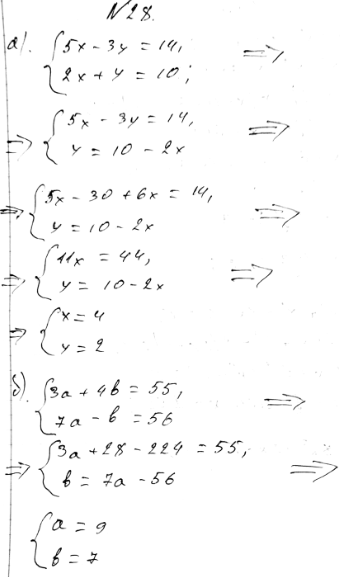 №28.
а). { 5x - 3y = 14, =>
{ 2x + y = 10;
=> { 5x - 3y = 14, =>
{ y = 10 - 2x
=> { 5x - 30 + 6x = 14, =>
{ y = 10 - 2x
=> { 11x = 44, =>
{ y = 10 - 2x
=> { x = 4
{ y = 2
б). { 3a + 4b = 55, =>
{ 7a - b = 56
=> { 3a + 28 - 224 = 55, =>
{ b = 7a - 56
{ a = 9
{ b = 7